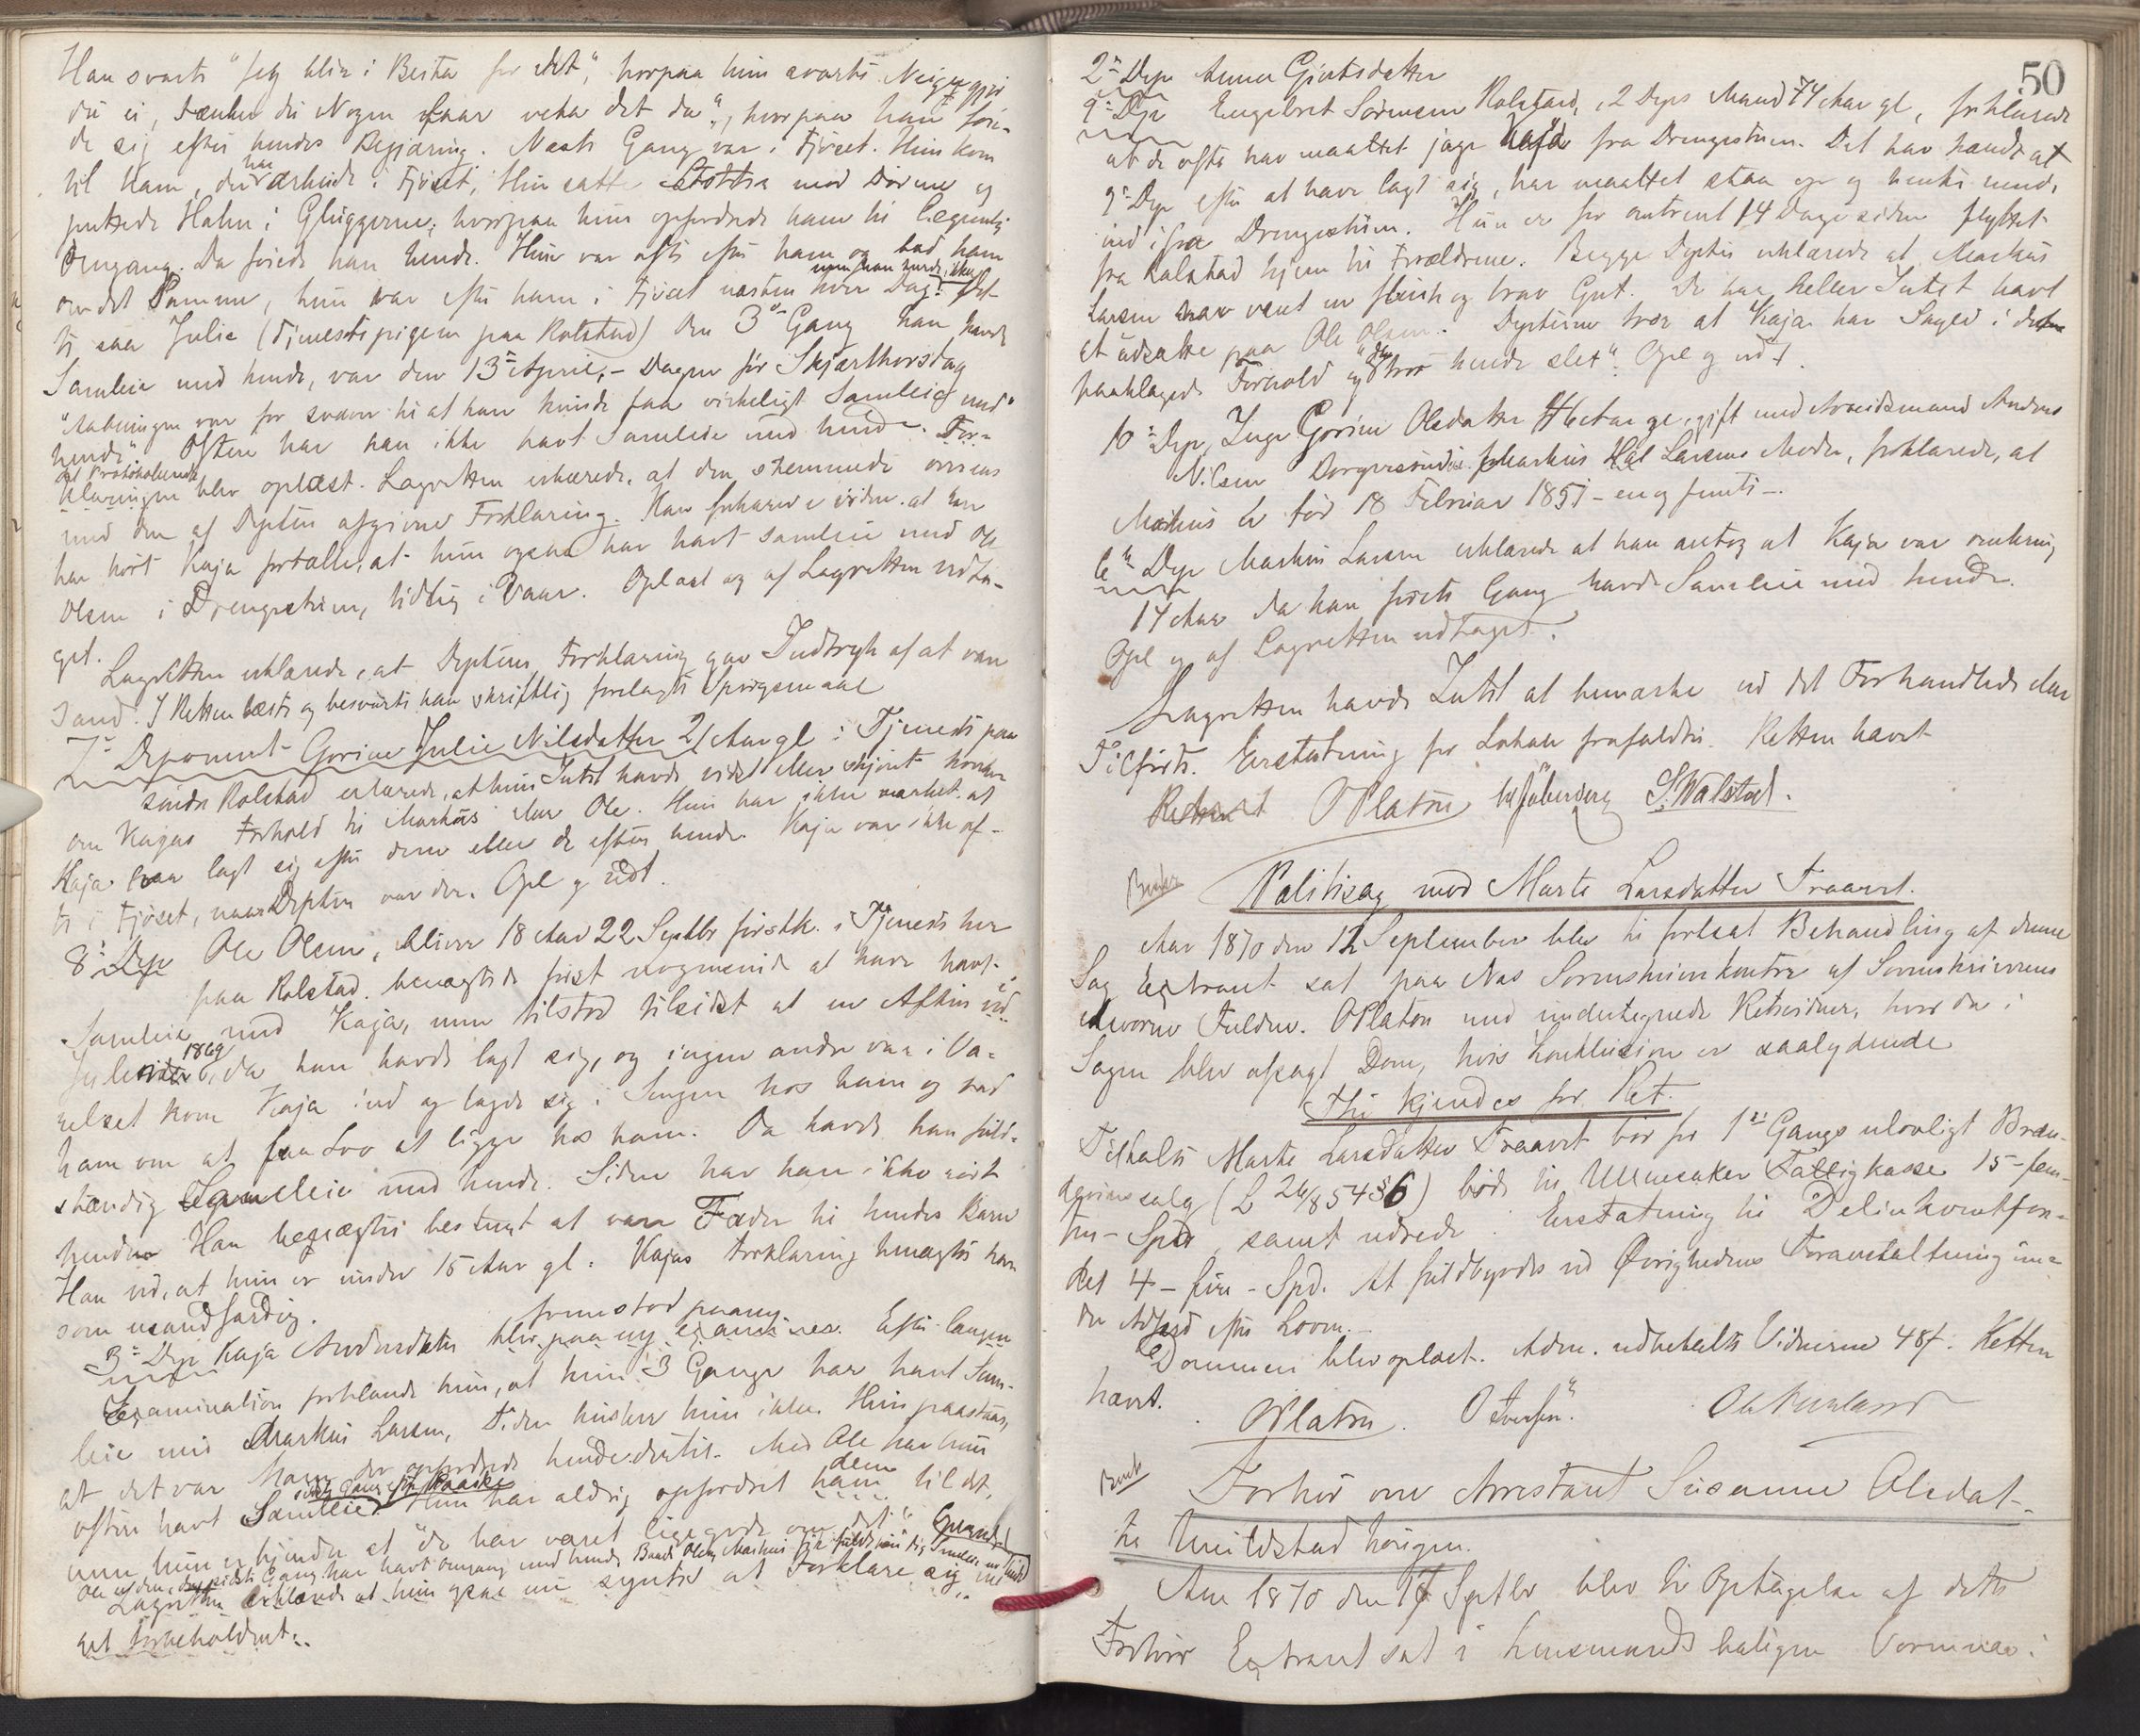 Han svarte "Jeg blir i Beita for det", hvorpaa hun svarte Nei gu gjør
du ei, tænker du Nogen faar veta det da", hvorpaa han føie-
de sig efter hendes Begjæring. Næste Gang var i Fjøset. Hun kom
til ham, der har arbeide i Fjøset, Hun satte Støtter mod Dørene og
puttede Halm i Gluggerne, hvorpaa hun opfordrede ham til legemlig
Omgang. Da føiede han hende. Hun var ofte efter ham og bad ham
om det Samme, hun var efter ham i Fjøset næsten hver Dag
saa Julie (Tjenestepigen paa Rolstad) den 3die Gang han havde
Samleie med hende, var den 13de April, - Dagen før Skjærthorsdag
"Aabningen var for snever til at han kunde faa virkeligt Samleie med"
hende". Oftere har han ikke havt Samleie med hende. For-
klaringen blev oplæst. Lagretten erklærede, at den stemmede overens
med den af Depten afgivne Forklaring. Han forklarer videre at han
har hørt Kaja fortælle, at hun ogsaa har havt Samleie med Ole
Olsen i Drengestuen, tidlig i Vaar. Oplæst og af Lagretten vedta-
get.
Lagretten erklærede, at Deptens Forklaring gav Indtryk af at være
Sand. I Retten læste og besvarte han skriftlig forelagte Spørgsmaal
7de Deponent Gorine Julie Nilsdatter 21 Aar gl. i Tjeneste paa
søndre Rolstad erklærede, at hun Intet havde vidst eller skjønt
om Kajas Forhold til Markus eller Ole. Hun har ikke mærket at
Kaja har lagt sig efter dem eller de efter hende. Kaja var ikke of-
te i Fjøset, naar Depten var der. Opl og vedt.
8de Dep Ole Olsen, bliver 18 Aar 22 Septbr førstk. i Tjeneste her
paa Rolstad benægtede først nogensinde at have havt
Samleie med Kaja, men tilstod tilsidst at en Aften ved
Juletider 1869, da han havde lagt sig, og ingen andre var i Væ-
relset kom Kaja ind og lagde sig i Sengen hos ham og bad
ham om at faa Lov at ligge hos ham. Da havde han fuld-
stændig Samleie med hende. Siden har han ikke rørt
hende. Han benægter bestemt at være Fader til hendes Barn
Han ved, at hun er under 15 Aar gl. Kajas Forklaring benægter han
som usandfærdig.
3de Dep Kaja Andersdatter fremstod paany. Efter længere
Examination forklarede hun, at hun 3 Gange har havt Sam-
leie med Markus Larsen, Tiden husker hun ikke. Hun paastaar,
at det var Ham der opfordrede hende dertil. Med Ole har hun
oftere havt Samleie Hun har aldrig opfordret dem til det,
men hun erkjender at "de har været ligegode om det".
Lagretten erklærede at hun gav nu syntes at Forklare sig
det forbeholdent.

50
2den Dep Anna Gjertsdatter
9de Dep Engebret Sørensen Rolstad, 2 Deps Mand 74 Aar gl, forklarede
at de ofte har maattet jage Kaja fra Drengestuen. Det har hændt at
9de Dep efter at have lagt sig, har maattet staa op og hente hende
ind ifra Drengestuen. Hun er for omtrent 14 Dage siden flyttet
fra Rolstad hjem til Forældrene. Begge Depter erklærede at Markus
Larsen har vært en flink og brav Gut. De har heller Intet havt
at udsætte paa Ole Olsen. Depterne tror at Kaja har Skyld i dette
paaklagede Forhold og "de tror hende slet". Opl og vedt.
10de Dep, Inger Gorine Olsdatter 46 Aar gl. gift med Arbeidsmand Anders
Nilsen Markus Larsens Moder, forklarede, at
Markus er fød 18 Februar 1851 - en og femti -.
6te Dep Markus Larsen erklærede at han antog at Kaja var omkring
14 Aar da han første Gang havde Samleie med hende.
Opl og af Lagretten vedtaget.
Lagretten havde Intet at bemærke ved det Forhandlede eller
Tilførte. Erstatning for Lokale frafaldtes. Retten hævet
OPlatou S. Walstad.
Politisag mod Marte Larsdatter Traaset.
Aar 1870 den 12 September blev til fortsat Behandling af denne
Sag Extraret sat paa Næs Sorenskriverkontor af Sorenskriverens
edsvorne Fuldm. OPlatou med undertegnede Retsvidner, hvor da i
Sagen blev afsagt Dom, hvis Konklusion er saalydende
Thi kjendes for Ret.
Tiltalte Marte Larsdatter Traaset bør for 1ste Gangs ulovligt Bræn-
devinssalg (L 26/8 54 § 6) bøde til Ullensaker Fattigkasse 15 - fem-
ten - Spd, samt udrede i Erstatning til Delinkventfon-
det 4 - fire - Spd. At fuldbyrdes ved Øvrighedens Foranstaltning un-
der Adfærd efter Loven. -
Dommen blev oplæst. Adm. udbetalte Vidnerne 48 f. Retten
hævet.
OPlatou. O Iversen.
Forhør over Arrestant Susanne Olsdat-
ter
Aar 1870 den 17 Septbr blev til Optagelse af dette
Forhør Extraret sat i Lensmandsboligen Vormnæs i